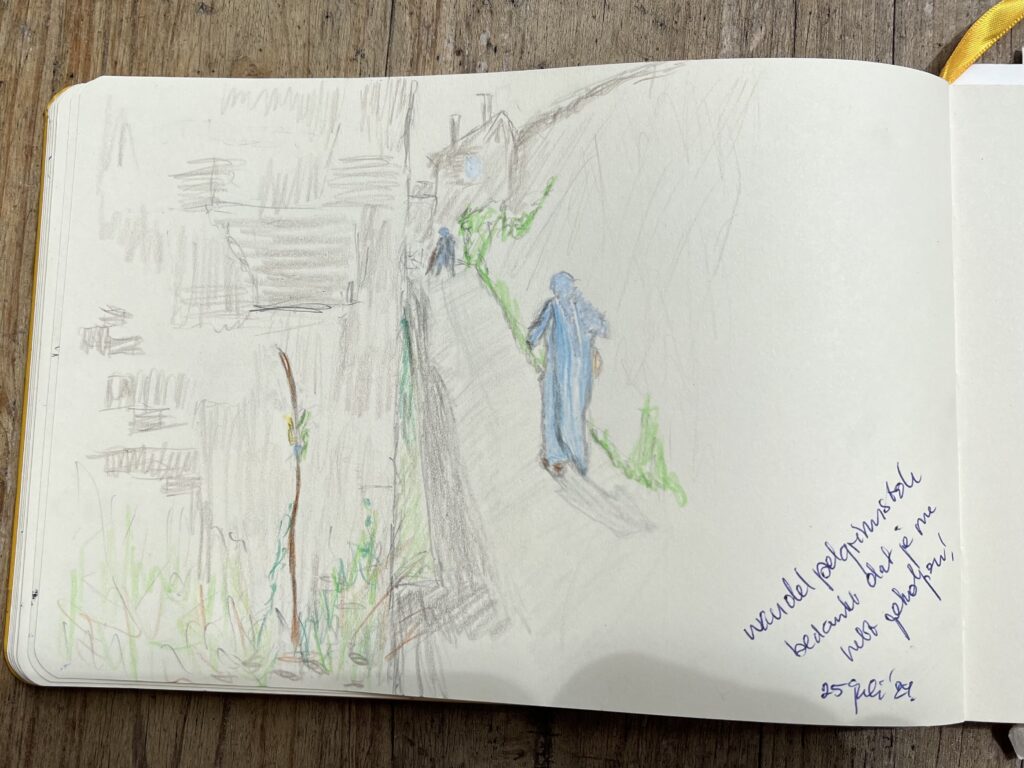 wandel pelgrimstok
bedankt dat je me
hebt geholpen!
25 juli